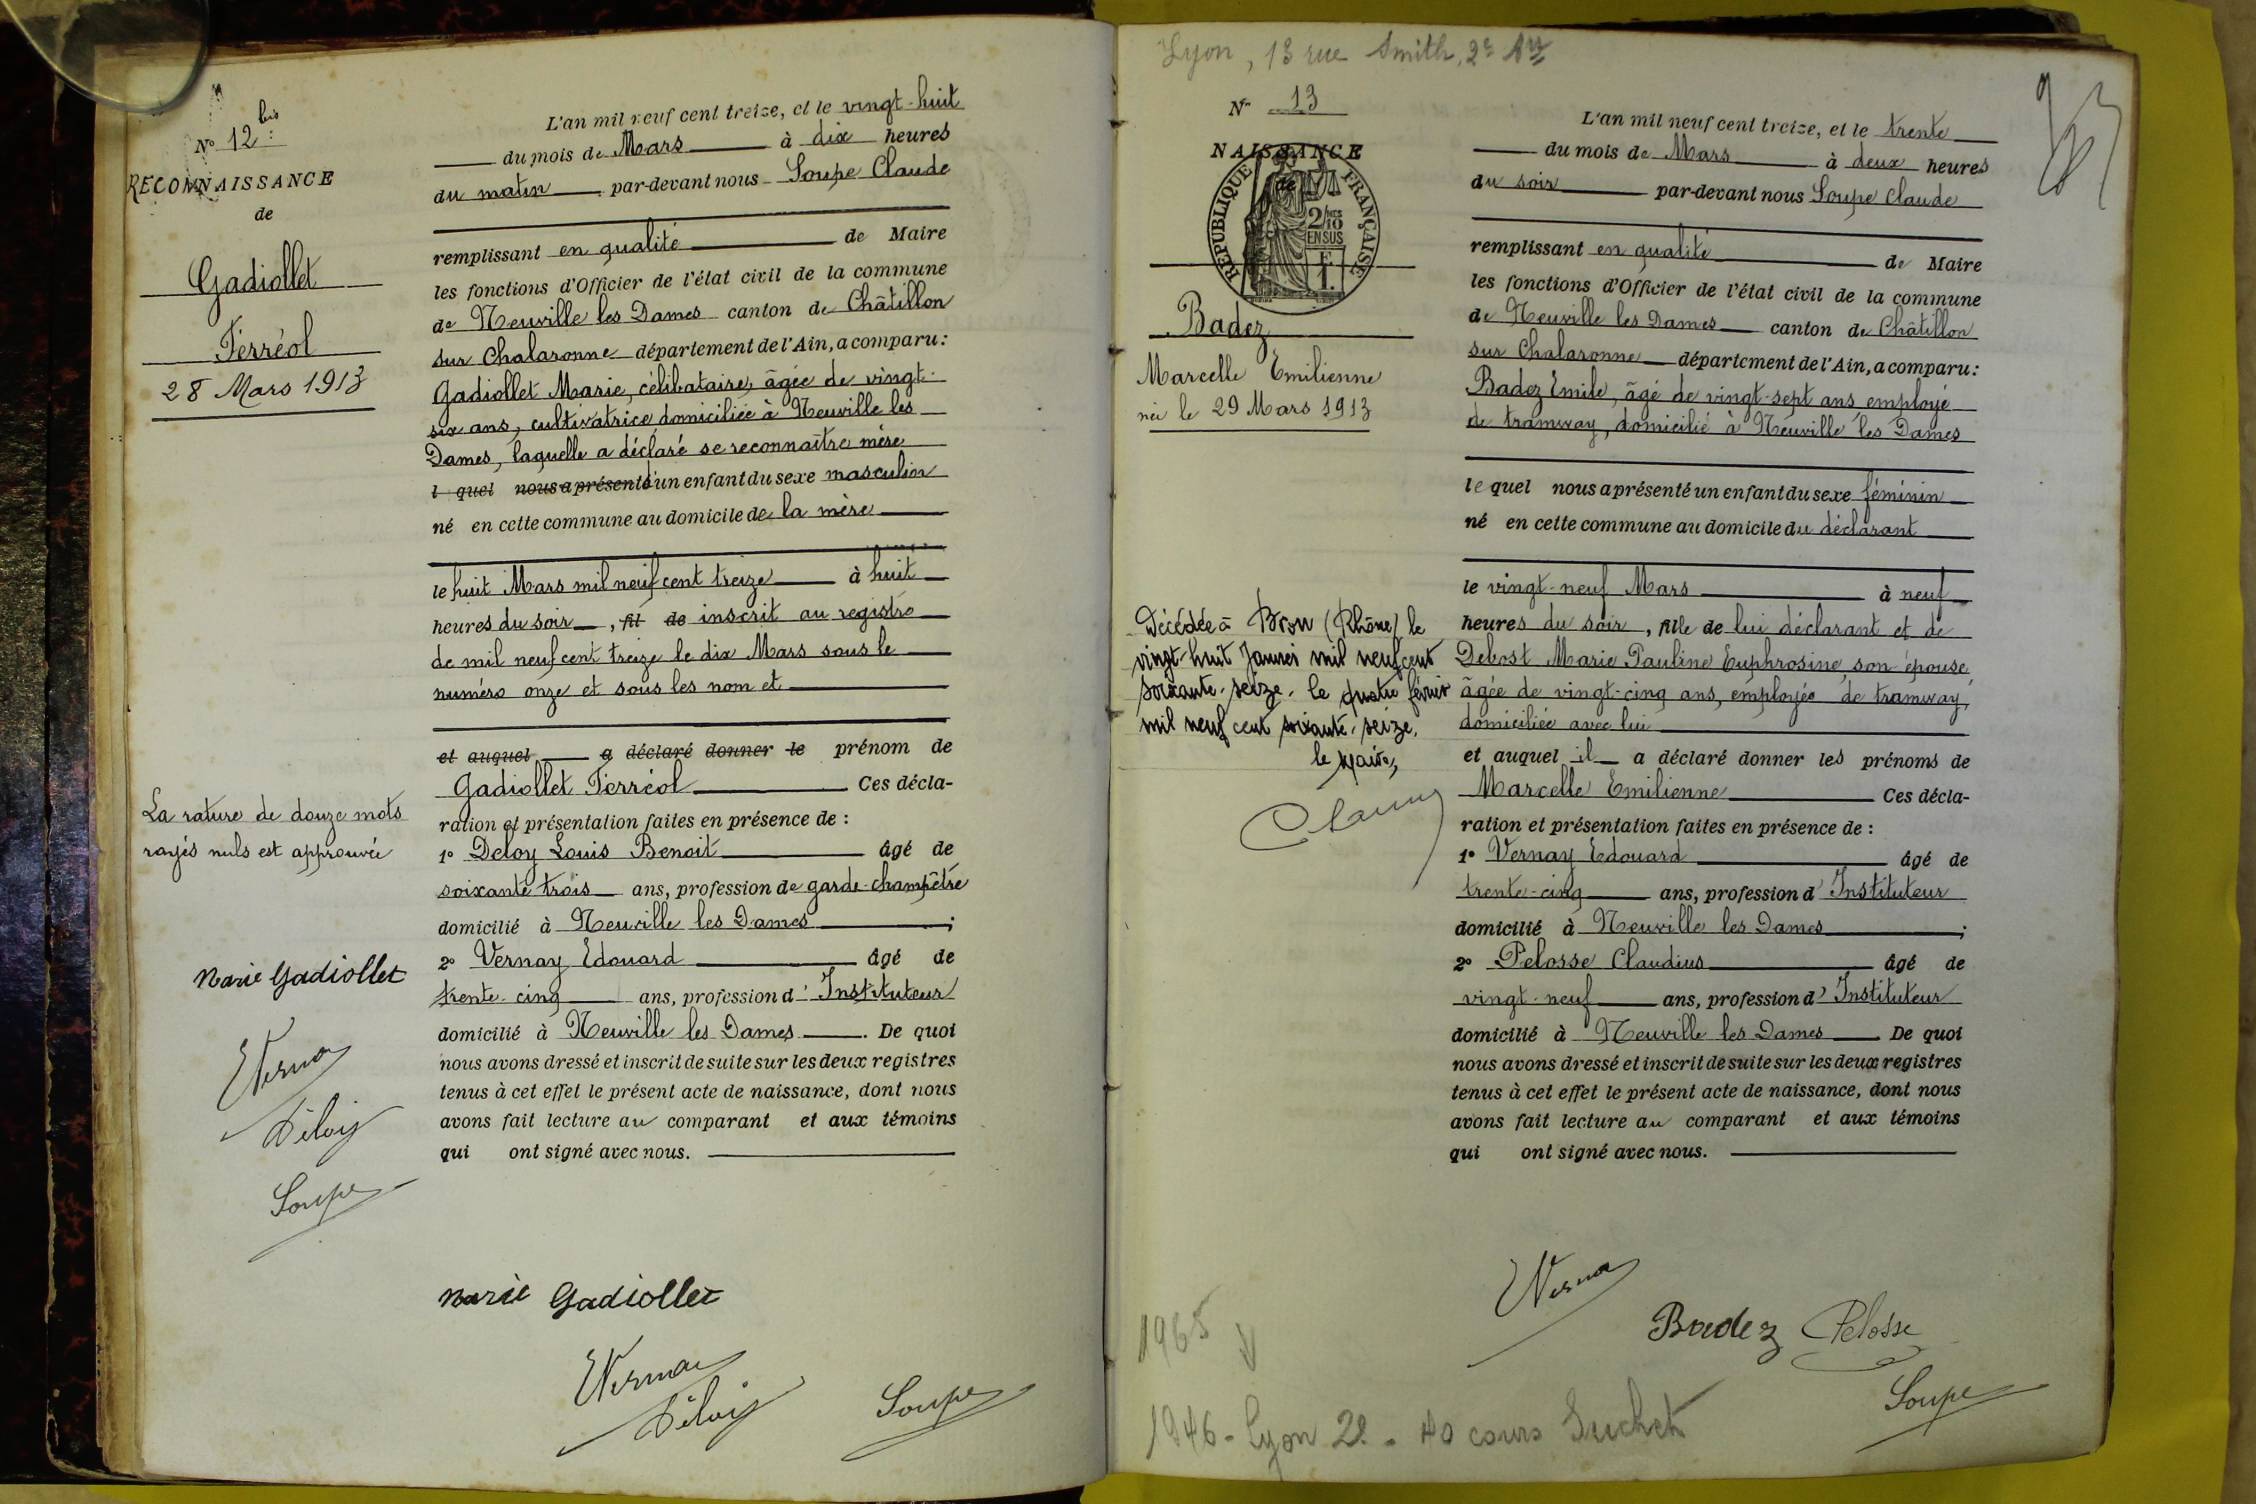 N° 12 bis :
RECONNAISSANCE
de
Gadiollet
Ferréol
28 Mars 1913
L'an mil neuf cent treize, et le vingt-huit
du mois de Mars à dix heures
du matin par-devant nous Soupe Claude
remplissant en qualité de Maire
les fonctions d'Officier de l'état civil de la commune
de Neuville les Dames canton de Châtillon
sur Chalaronne département de l'Ain, a comparu :
Gadiollet Marie, célibataire, âgée de vingt-
six ans, cultivatrice, domiciliée à Neuville les
Dames, laquelle a déclaré se reconnaître mère
l quel nous a présenté d'un enfant du sexe masculin
né en cette commune au domicile de la mère
le huit Mars mil neuf cent treize à huit
heures du soir, fil de inscrit au registre
de mil neuf cent treize le dix Mars sous le
numéro onze et sous les nom et
et auquel a déclaré donner le prénom de
Gadiollet Ferréol Ces décla-
ration et présentation faites en présence de :
1° Deloy Louis Benoit âgé de
soixante trois ans, profession de garde-champêtre
domicilié à Neuville les Dames ;
2° Vernay Edouard âgé de
trente-cinq ans, profession d'Instituteur
domicilié à Neuville les Dames. De quoi
nous avons dressé et inscrit de suite sur les deux registres
tenus à cet effet le présent acte de naissance, dont nous
avons fait lecture au comparant et aux témoins
qui ont signé avec nous.
La rature de douze mots
rayés nuls est approuvée
Marie Gadiollet
EVernay
Déloy
Soupe
Marie Gadiollet
EVernay
Déloy
Soupe
Lyon, 13 rue Smith, 2e Arr
N° 13
NAISSANCE
de
RÉPUBLIQUE FRANÇAISE
2/10
EN SUS
Badez
Marcelle Emilienne
née le 29 Mars 1913
L'an mil neuf cent treize, et le trente
du mois de Mars à deux heures
du soir par-devant nous Soupe Claude
remplissant en qualité de Maire
les fonctions d'Officier de l'état civil de la commune
de Neuville les Dames canton de Châtillon
sur Chalaronne département de l'Ain, a comparu :
Badez Emile, âgé de vingt-sept ans, employé
de tramway, domicilié à Neuville les Dames
lequel nous a présenté un enfant du sexe féminin
né en cette commune au domicile du déclarant
le vingt-neuf Mars à neuf
heures du soir, fille de lui déclarant et de
Debost Marie Pauline Euphrosine, son épouse,
âgée de vingt-cinq ans, employée de tramway,
domiciliée avec lui
et auquel il a déclaré donner les prénoms de
Marcelle Emilienne Ces décla-
ration et présentation faites en présence de :
1° Vernay Edouard âgé de
trente-cinq ans, profession d'Instituteur
domicilié à Neuville les Dames ;
2° Pelosse Claudius âgé de
vingt-neuf ans, profession d'Instituteur
domicilié à Neuville les Dames. De quoi
nous avons dressé et inscrit de suite sur les deux registres
tenus à cet effet le présent acte de naissance, dont nous
avons fait lecture au comparant et aux témoins
qui ont signé avec nous.
Décédée à Bron (Rhône) le
vingt-huit Janvier mil neuf cent
soixante-seize. le quatre février
mil neuf cent soixante-seize.
le Maire,
EVernay
Badez Pelosse
Soupe
1965
1946 - Lyon 2e - 40 cours Suchet